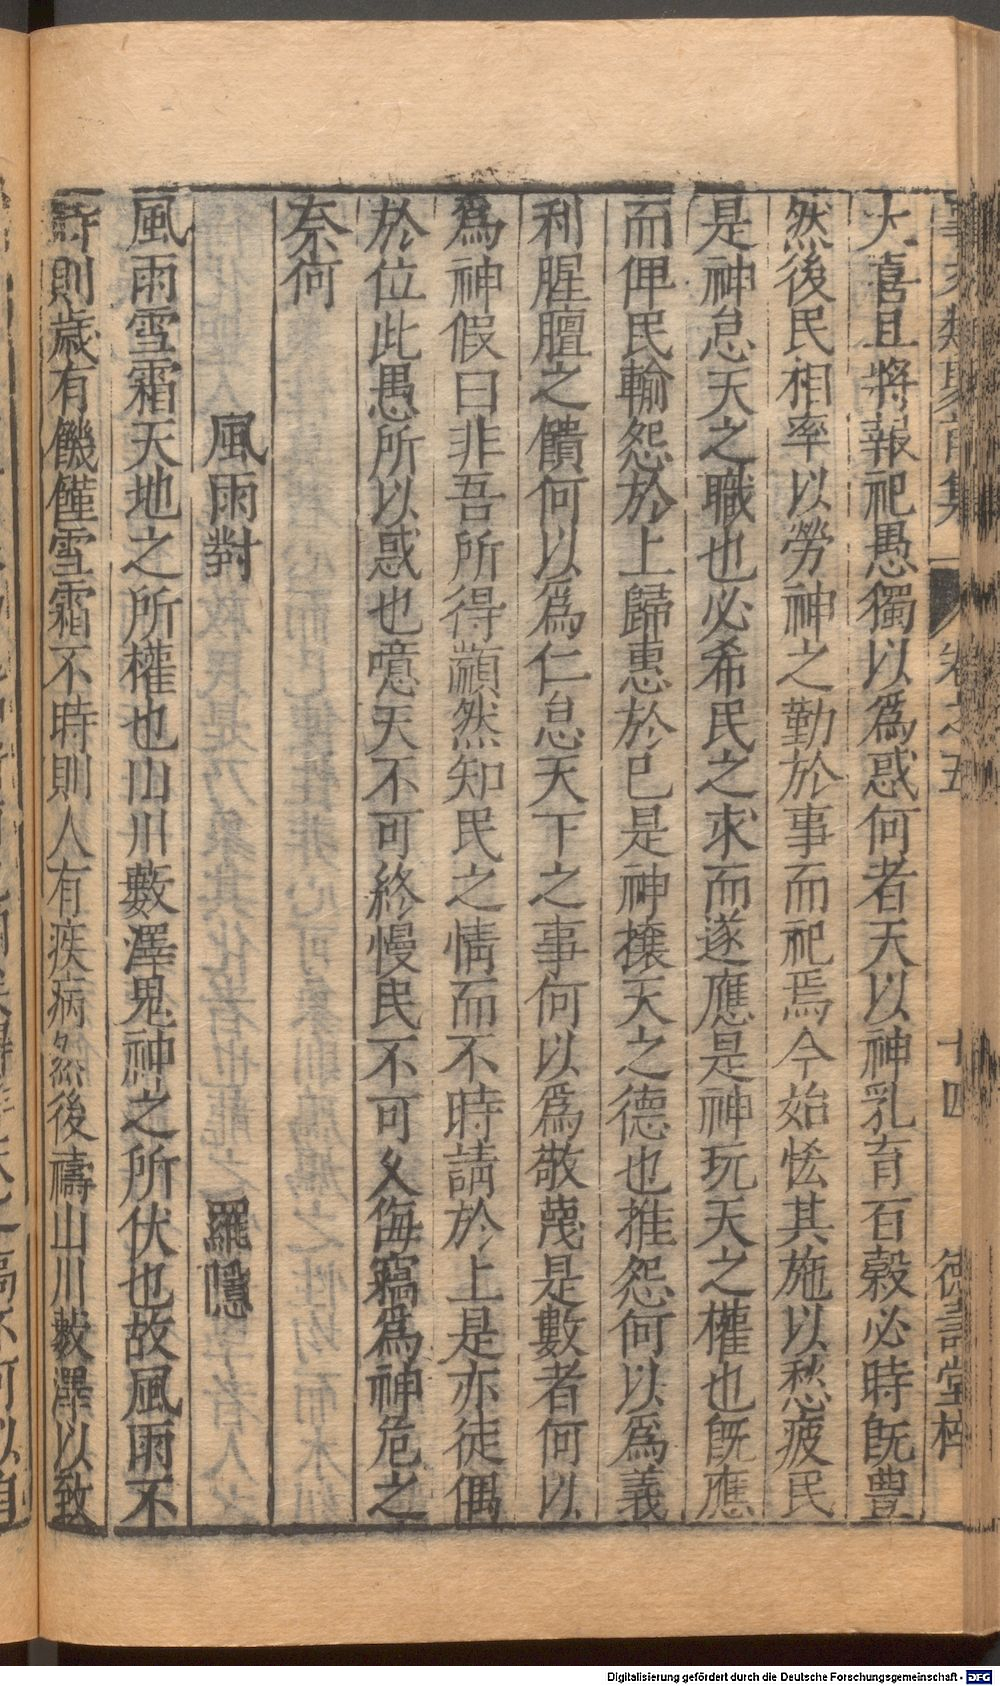 卷之五
十四
大喜且將報祀愚獨以爲惑何者天以神乳育百榖必時旣豊
然後民相率以勞神之勤於事而祀焉今始恡其施以愁疲民
是神怠天之職也必希民之求而遂應是神玩天之權也旣應
而俾民輸怨於上歸惠於已是神攘天之德也推怨何以爲義
利腥膻之饋何以爲仁怠天下之事何以爲敬蔑是數者何以
爲神假曰非吾所得顓然知民之情而不時請於上是亦徒偶
於位此愚所以惑也噫天不可終慢民不可久侮竊爲神危之
奈何
風雨對 羅隱
風雨雪霜天地之所權也山川藪澤鬼神之所伏也故風雨不
時則歲有饑饉雪霜不時則人有疾病然後禱山川藪澤以致
Digitalisierung gefördert durch die Deutsche Forschungsgemeinschaft - DFG